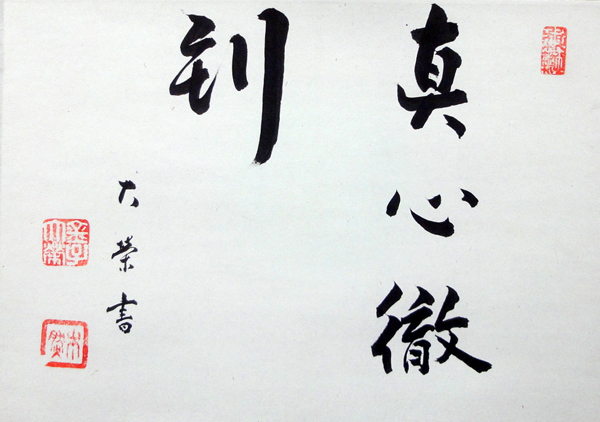 真心徹
到
大榮書